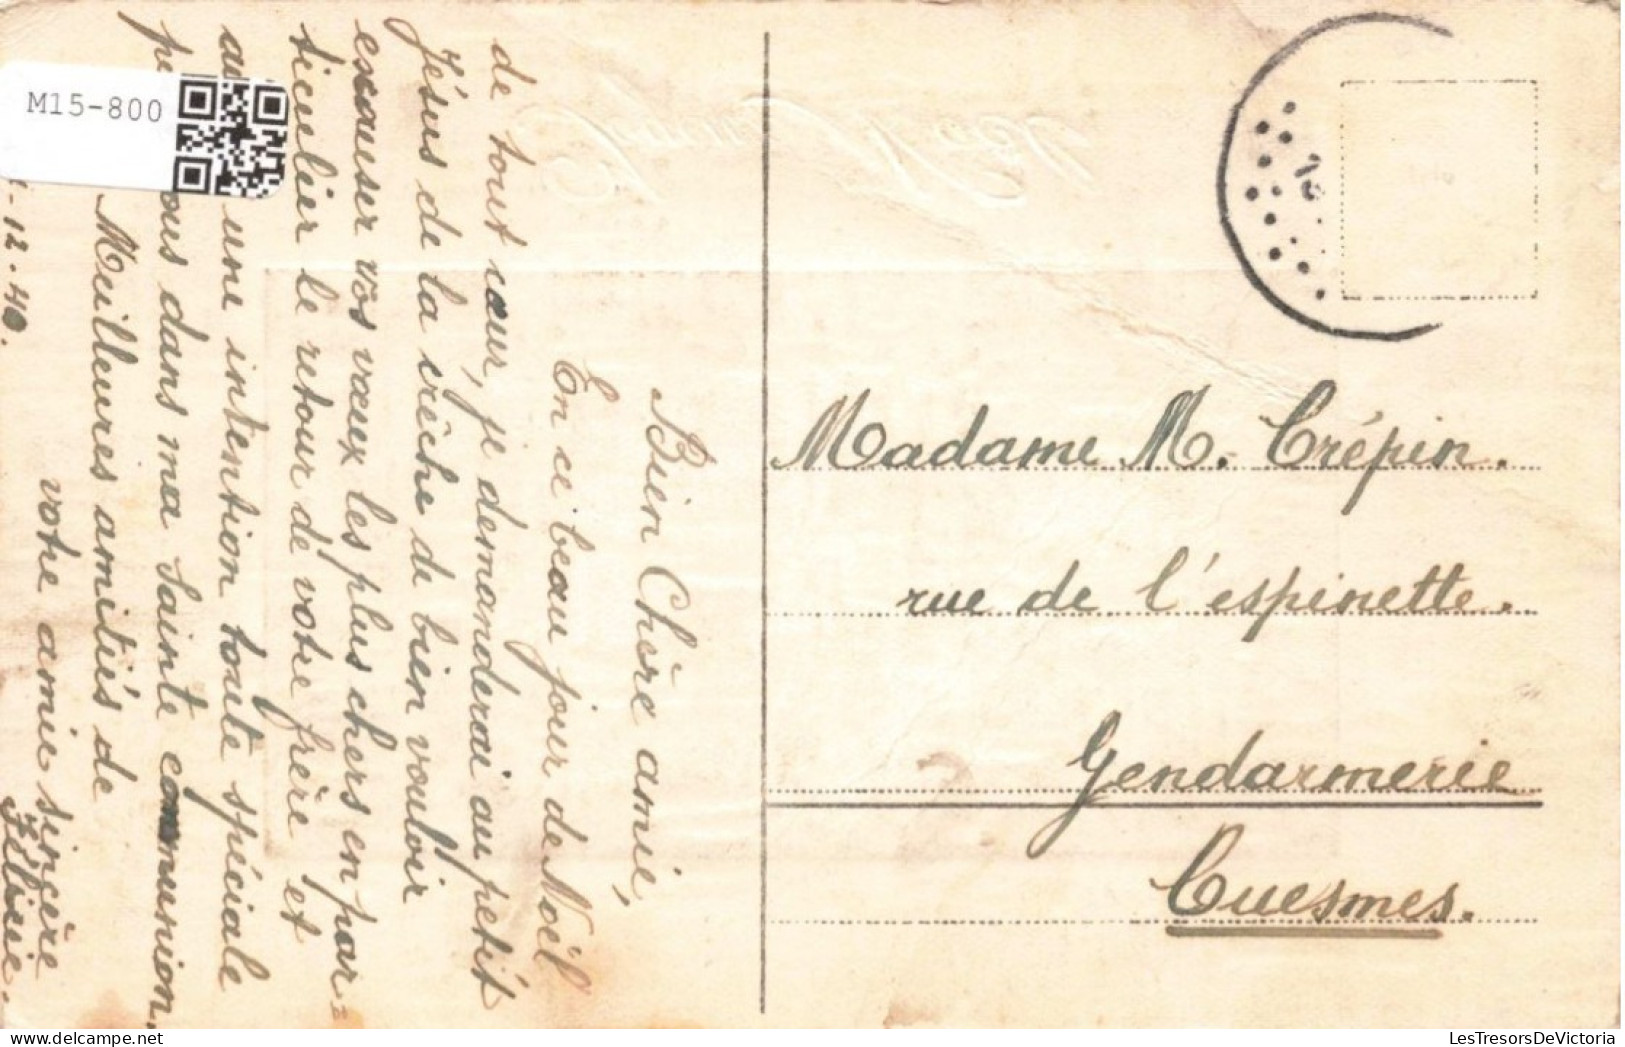 M15-800
Bien Chère amie,
En ce beau jour de Noël
de tout cœur, je demanderai au petit
Jésus de la crèche de bien vouloir
escauser vos vœux les plus chers en par-
ticulier le retour de votre frère et
une intention toute spéciale
ous dans ma Sainte communion.
Meilleures amitiés de
votre amie sincère
-12.40.
Madame M. Crépin.
rue de l'espinette.
Gendarmerie
Cuesmes.
LesTresorsDeVictoria.com